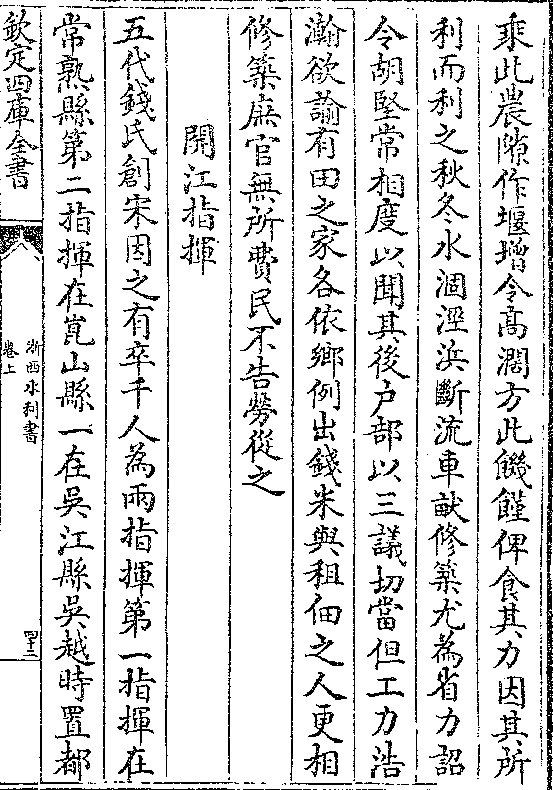 乘此農隙作堰增令髙濶方此饑饉俾食其力因其所
利而利之秋冬水涸涇浜斷流車畎修築尤為省力詔
令胡堅常相度以聞其後户部以三議切當但工力浩
瀚欲諭有田之家各依鄉例出錢米與租佃之人更相
修築庶官無所費民不告勞從之
開江指揮
五代錢氏創宋因之有卒千人為兩指揮第一指揮在
常熟縣第二指揮在崑山縣一在吳江縣吳越時置都
欽定四庫全書
浙西水利書
卷上
四十二